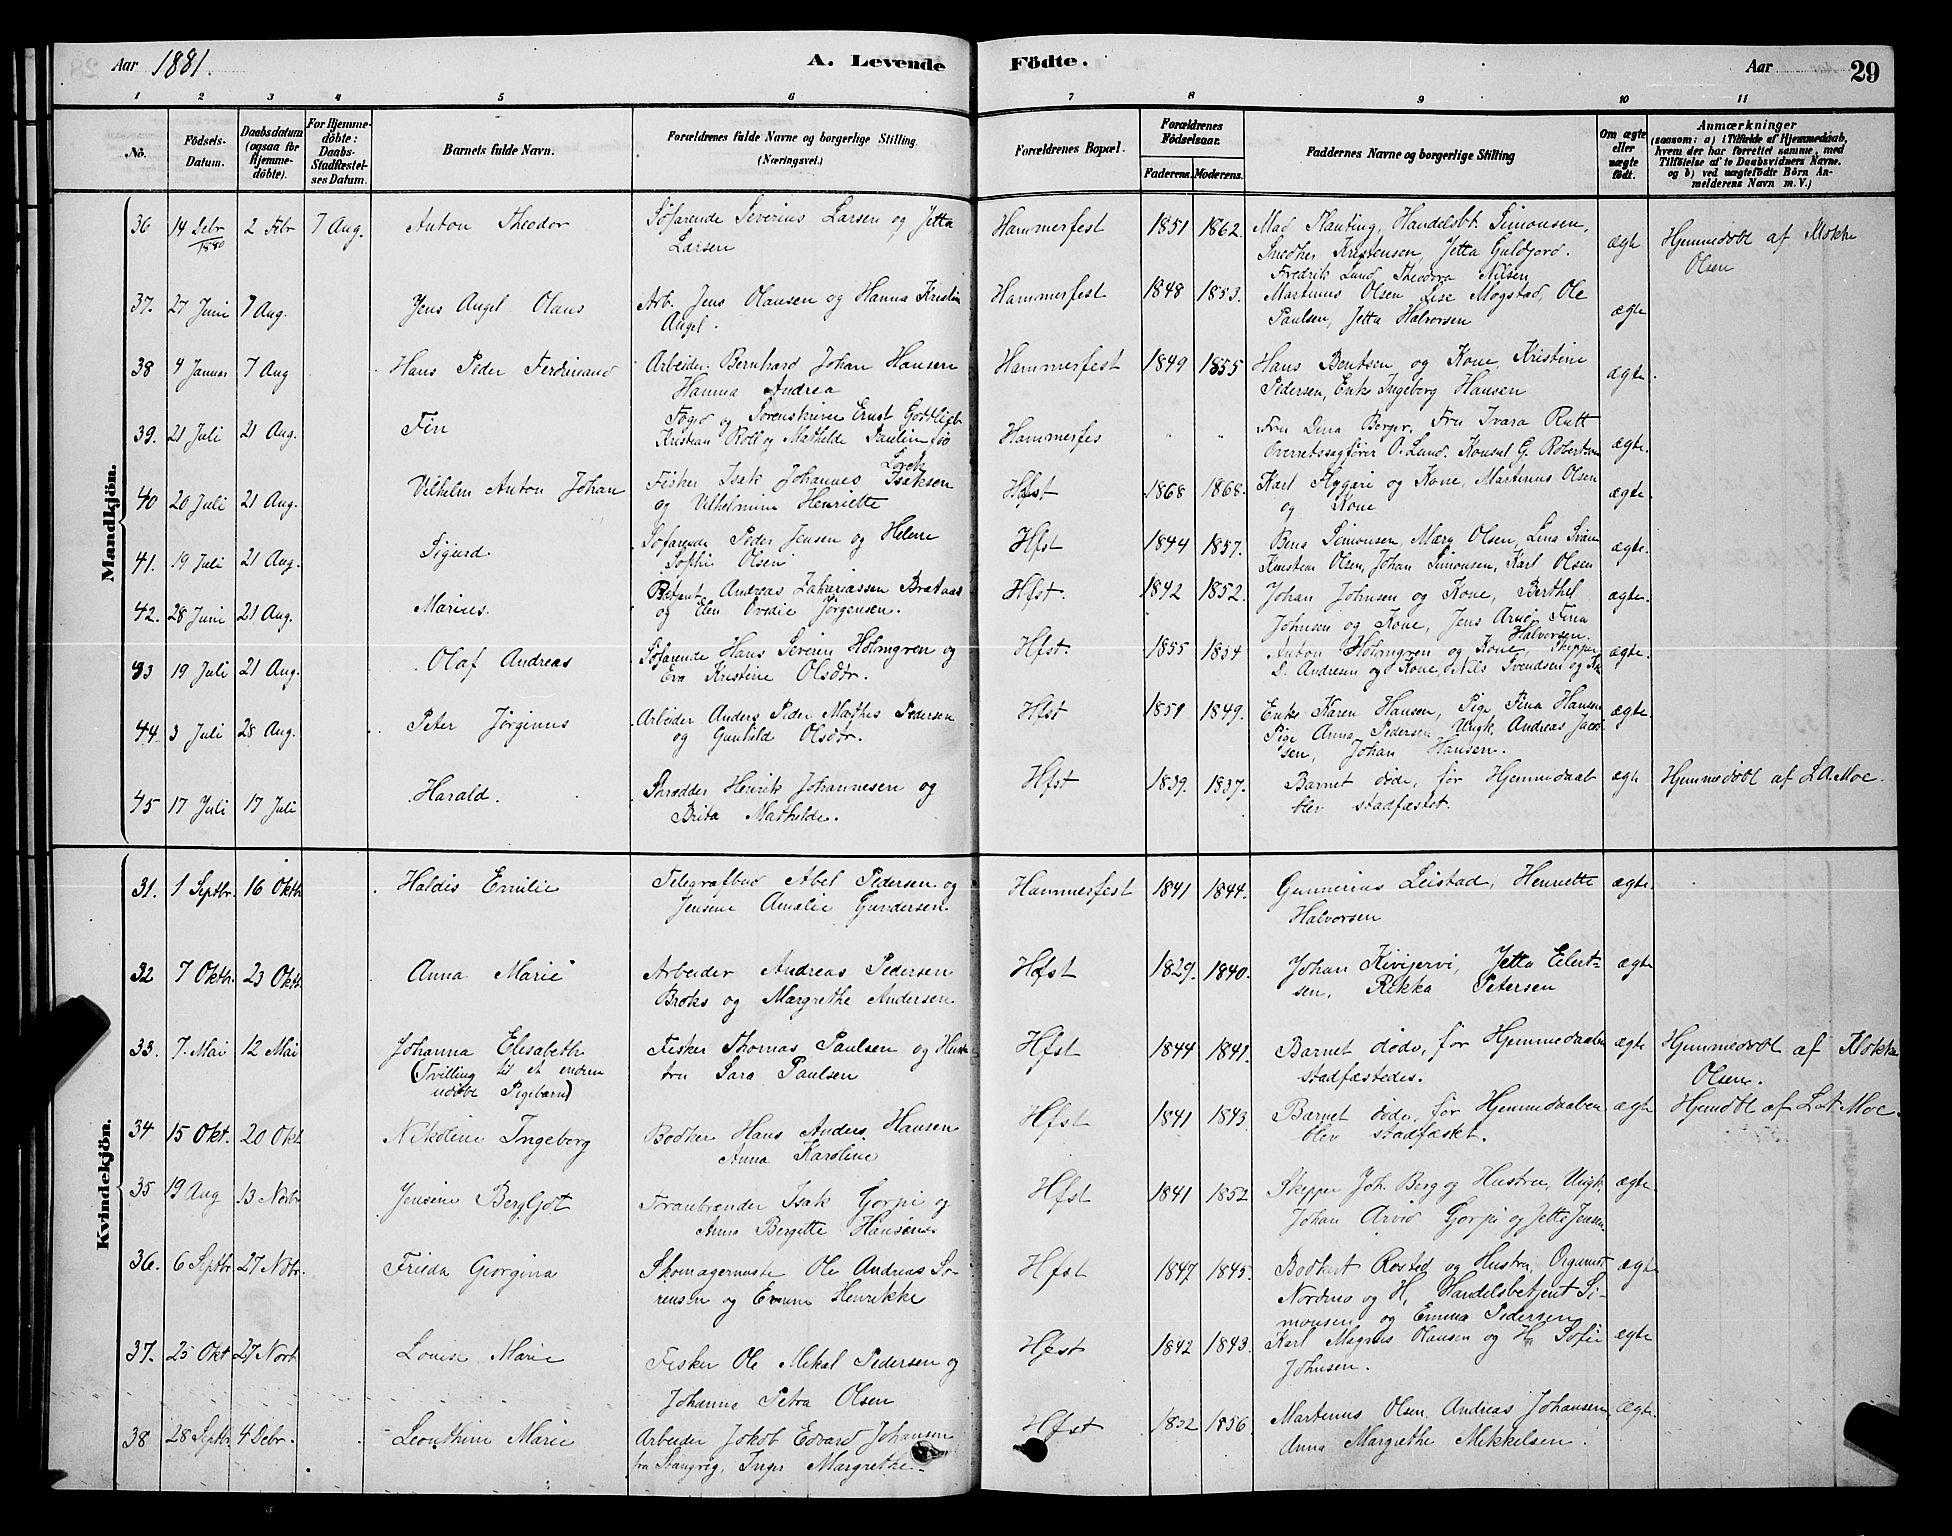 Aar 1881. A. Levende Födte. Aar 29
1 2 3 4 5 6 7 8 9 10 11
No. Födsels-Datum. Daabsdatum (ogsaa for Hjemmedöbte). For Hjemmedöbte: Daabs-Stadfæstelses Datum. Barnets fulde Navn. Forældrenes fulde Navne og borgerlige Stilling (Næringsvei.) Forældrenes Bopæl. Forældrenes Födselsaar. Faderens. Moderens. Faddernes Navne og borgerlige Stilling Om ægte eller uægte födt. Anmærkninger (saasom: a) i Tilfælde af Hjemmedaab, hvem der har forrettet samme, med Tilföielse af to Daabsvidners Navne. og b) ved uægtefödte Börn Anmelderens Navn m. V.)
Mandkjön.
36 14 Debr 1880 2 Febr 7 Aug. Anton Theodor Söfarende Severius Larsen og Jetta Hammerfest 1851 1862. Mad Planting, Handelsbt. Simonsen, ægte Hjemmedöbt af Klokke
Larsen Snedker Kristensen, Jetta Guldjord. Olsen
Fredrik Lund Theodora Nilsen
37. 27 Juni 7 Aug. Jens Angel Olaus Arb. Jens Olausen og Hanna Kristin Hammerfest 1848 1853. Martinus Olsen Lise Mogstad, Ole ægte
Angel. Paulsen, Jetta Halvorsen
38 4 Januar 7 Aug Hans Peder Ferdinand Arbeider Bernhard Johan Hansen Hammerfest 1849 1855 Hans Bentsen og Kone, Kristine ægte.
Hanna Andrea Pedersen, Enke Ingeborg Hansen
39. 21 Juli 21 Aug. Fin Foged og Sorenskriver Ernst Gottlieb Hammerfes " " Fru Dina Berger. Fru Ivara Rutt ægte.
Kristian Roll og Mathilde Paulin Overretssagförer O. Lund. Konsul G. Robertson
40 20 Juli 21 Aug. Vilhelm Anton Johan Fisker Isak Johannes Isaksen Hfst 1868 1868. Karl Hygari og Kone, Martinus Olsen ægte.
og Vilhelmine Henriette og Kone
41. 19 Juli 21 Aug. Sigurd. Söfarende Peder Jensen og Helene Hfst 1844 1857. Bena Simonsen, Mary Olsen, Lina ægte.
Sophie Olsen Olsen, Johan Simonsen, Karl Olsen
42. 28 Juni 21 Aug. Marius. Betjent Andreas Zakariassen Hfst. 1842 1852. Johan Johnsen og Kone, Berthel ægte.
og Elen Jörgensen. Johnsen og Kone, Jens Fina
Halvorsen.
43 19 Juli 21 Aug. Olaf Andreas Söfarende Hans Severin Holmgren og Hfst. 1855 1834 Anton Holmgren og Kone, Skipper ægte.
Eva Kristine Olsdtr. Andresen og Kone, Nils Svendsen og
44. 3 Juli 28 Aug. Peter Jörginus Arbeider Anders Peder Mathis Pedersen Hfst 1851 1849. Enke Karen Hansen, Pige Fina Hansen ægte.
og Gunhilde Olsdtr. Pige Anna Pedersen Ungk. Andreas Jacob-
sen, Johan Hansen.
45 17 Juli 17 Juli Harald. Skrædder Henrik Johannesen og Hfst 1839. 1837. Barnet döde, för Hjemmedaab ægte Hjemmedöbt af L.A. Moe.
Brita Mathilde. blev stadfæstet.
Kvindekjön.
31. 1 Septbr. 16 Oktbr Haldis Emilie Telegrafbud Abel Pedersen og Hammerfest 1841 1844. Gunnerius Leistad, Henriette ægte.
Jensine Amalie Gundersen. Halvorsen
32 7 Oktbr. 23 Oktb. Anna Marie Arbeider Andreas Pedersen Hfst 1829. 1840. Johan Kivijervi, Jetta Eilert- ægte
Broks og Margrethe Andersen sen, Rikka Petersen
33. 7. Mai 12 Mai Johanna Elisabeth Fisker Thomas Paulsen og Hust- Hfst 1844 1841. Barnet döde, för Hjemmedaaben ægte Hjemmedöbt af Klokke
(Tvilling til et endnu ru Sara Paulsen stadfæstedes. Olsen.
udöbt Pigebarn)
34 15 Okt. 20 Okt Nikoline Ingeborg Bödker Hans Anders Hansen Hfst 1841 1843. Barnet döde, för Hjemmedaaben ægte Hjemdöbt af L.A. Moe.
Anna Karoline blev stadfæstet.
35 19 Aug 13 Novbr Jensine Bergljot Tranbrænder Isak Gorpi og Hfst 1841 1852. Skipper Joh. Berg og Hustru, Ungk. ægte.
Anna Bergitte Hansene. Johan Arvid Gorpi og Jette Jensen
36. 6 Septbr. 27 Nobr. Frieda Georgina Skomagermester Ole Andreas Sö- Hfst 1847 1845. Rosted og Hustru, Organist ægte
rensen og Emma Henrikke Nordmo og H. Handelsbetjent Si-
monsen og Emma Pedersen
37. 25 Okt 27 Novb. Louise Marie Fisker Ole Mikal Pedersen og Hfst 1842 1843. Karl Magnus Olausen og H. Sofie ægte
Johanna Petra Olsen Johnsen.
38 28 Septbr. 4 Debr. Leonthine Marie Arbeider Jakob Edvard Johansen Hfst. 1832 1856. Martinus Olsen, Andreas Johansen, ægte.
fra Stangvig, Inger Margrethe Anna Margrethe Mikkelsen.